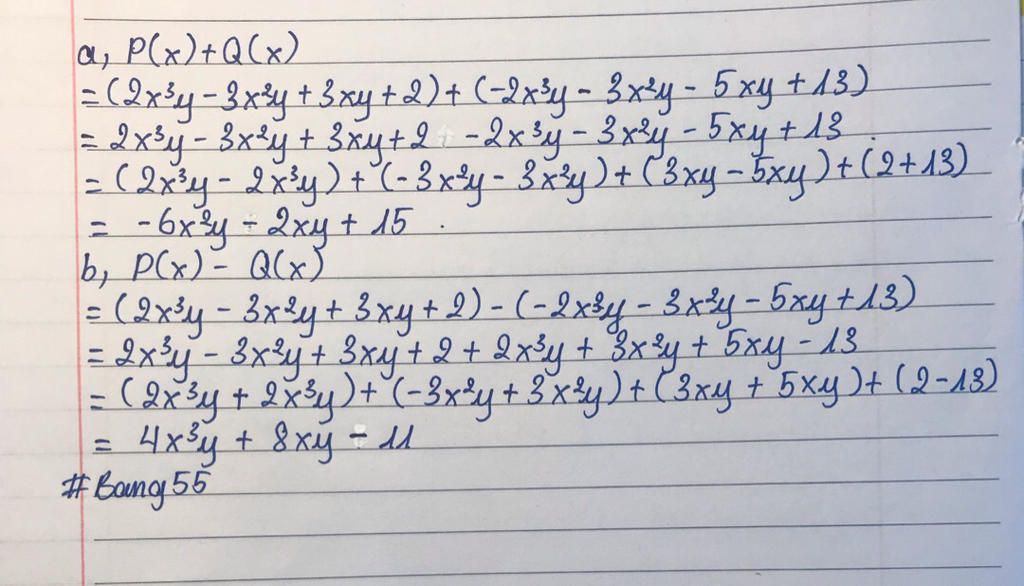 a, P(x)+Q(x)
=(2x³y - 3x²y + 3xy + 2) + (-2x³y - 3x²y - 5xy + 13)
= 2x³y - 3x²y + 3xy + 2 - 2x³y - 3x²y - 5xy + 13.
= (2x³y - 2x³y) + (-3x²y - 3x²y) + (3xy - 5xy) + (2+13)
= -6x²y - 2xy + 15.
b, P(x) - Q(x)
= (2x³y - 3x²y + 3xy + 2) - (-2x³y - 3x²y - 5xy + 13)
= 2x³y - 3x²y + 3xy + 2 + 2x³y + 3x²y + 5xy - 13
= (2x³y + 2x³y) + (-3x²y + 3x²y) + (3xy + 5xy) + (2-13)
= 4x³y + 8xy - 11
#Bang55